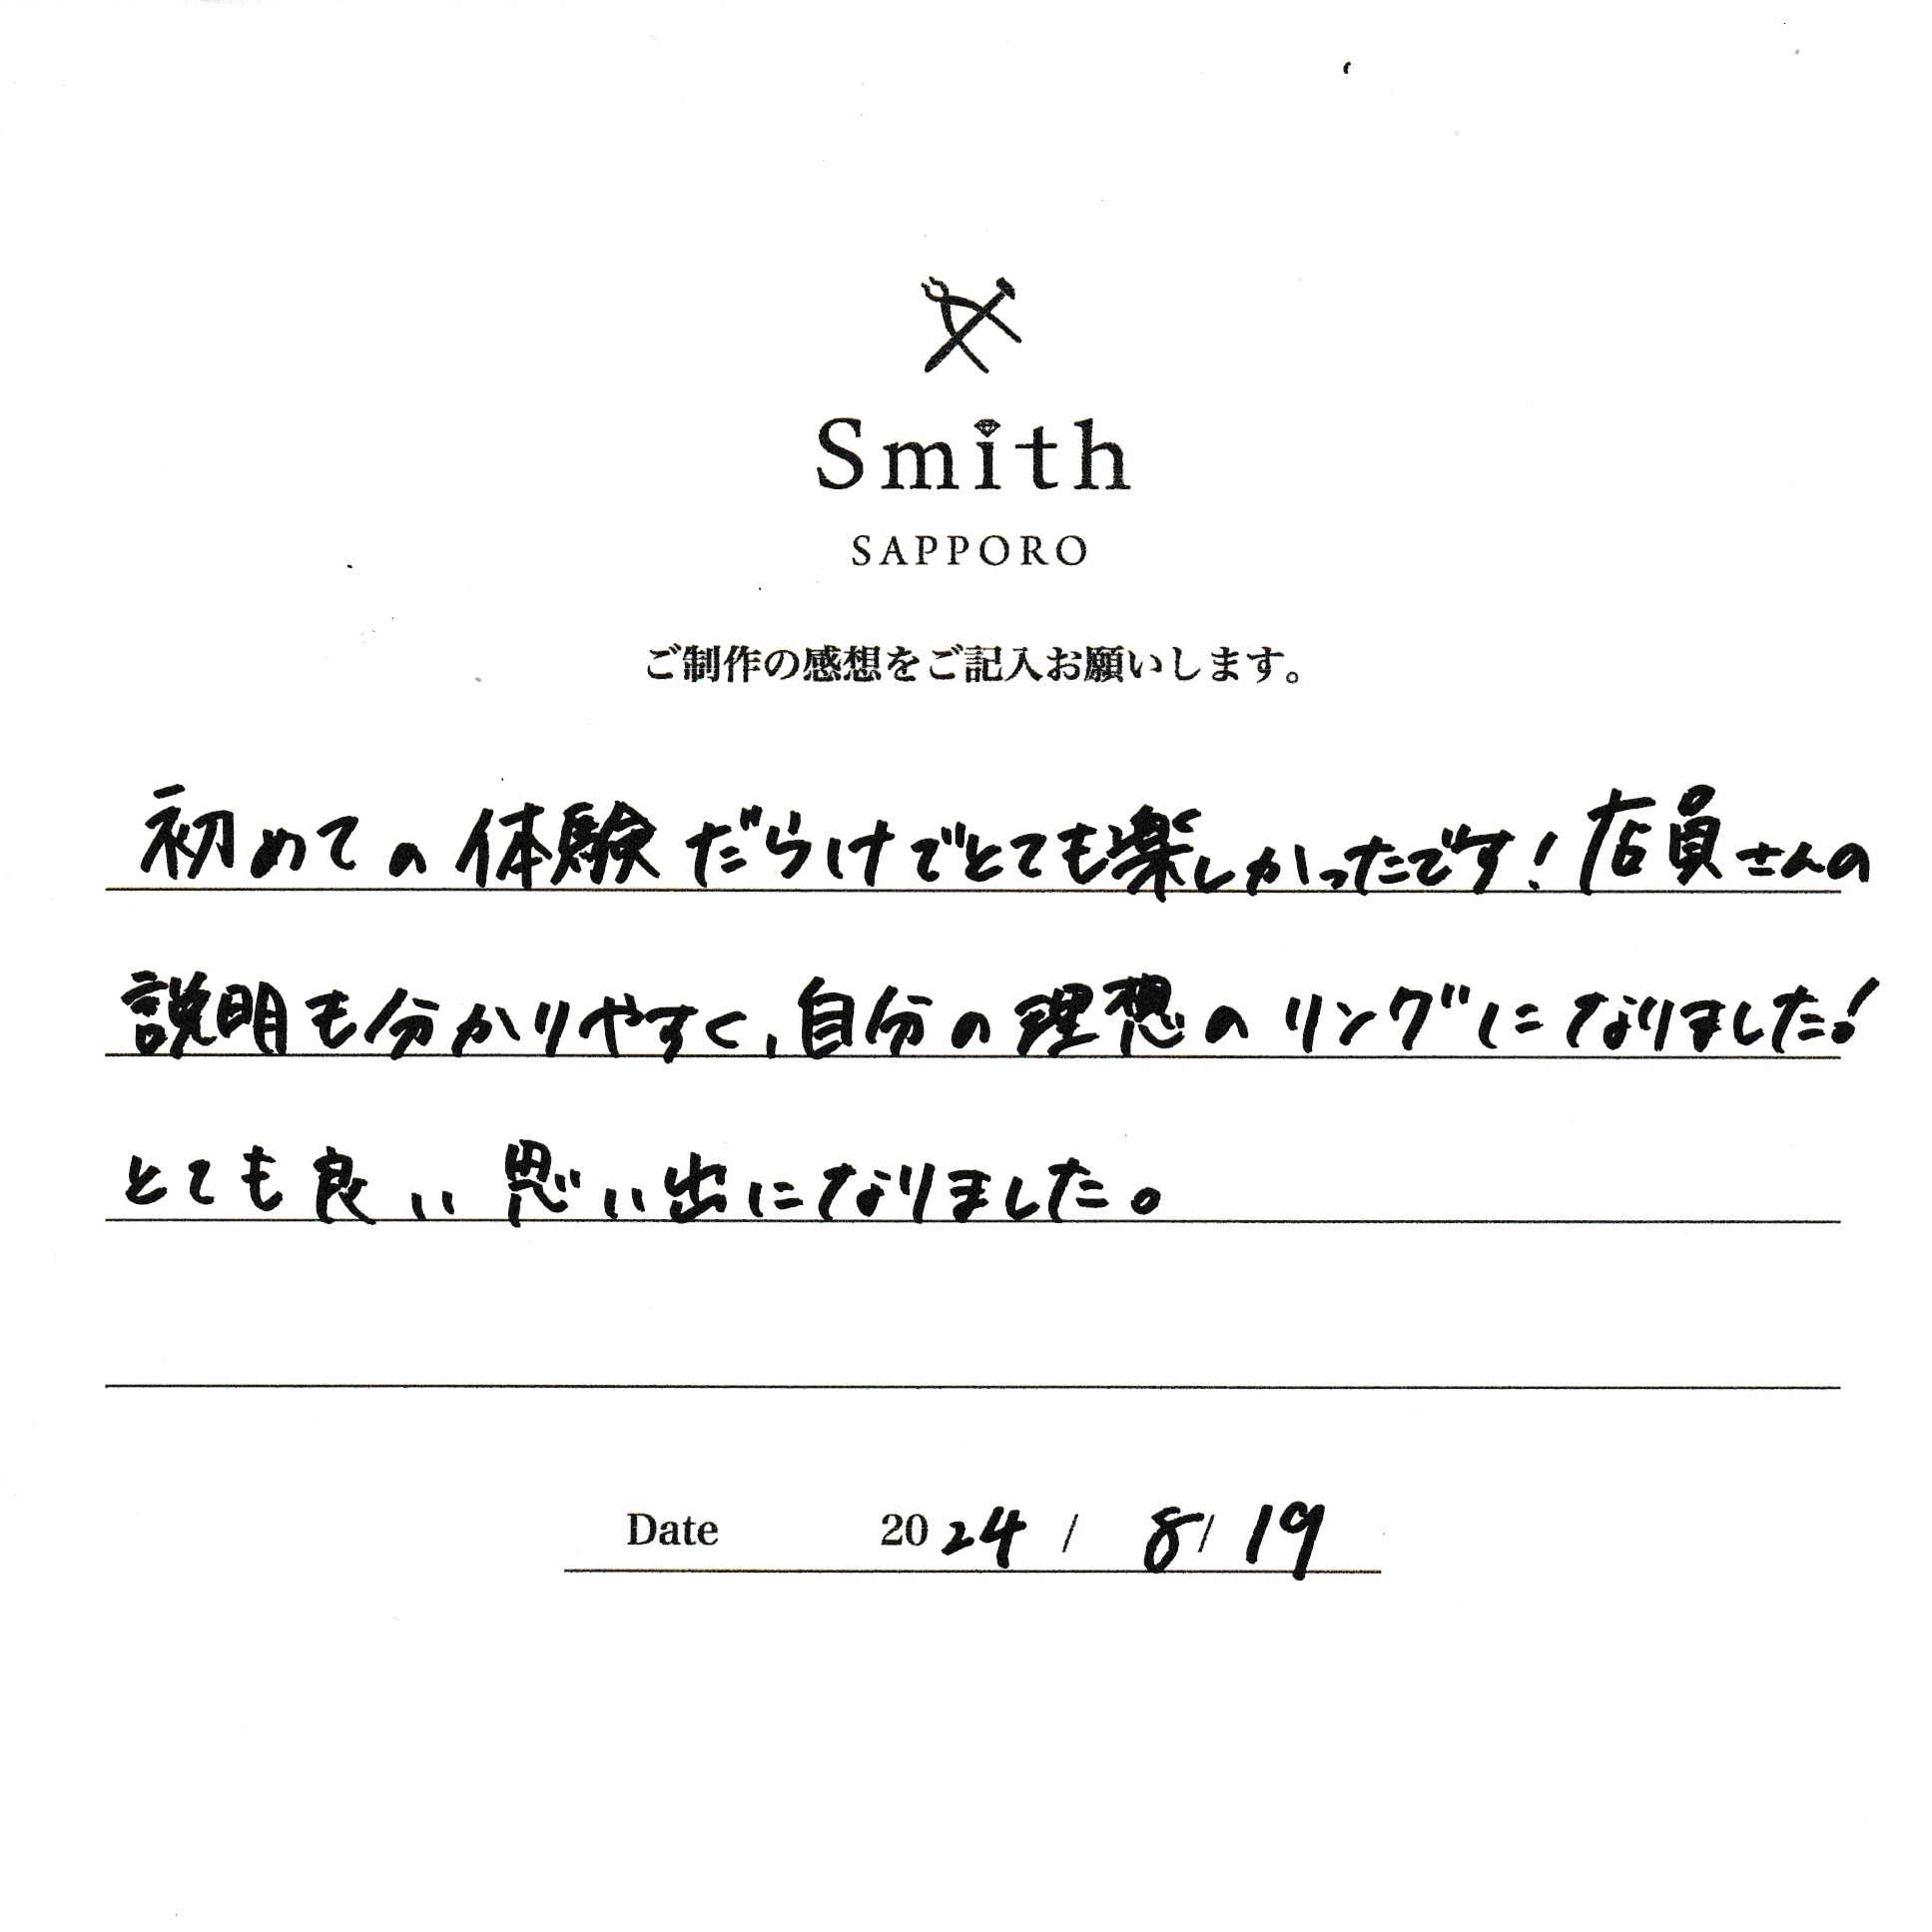 Smith
SAPPORO
ご制作の感想をご記入お願いします。
初めての体験だらけでとても楽しかったです！店員さんの
説明も分かりやすく、自分の理想のリングになりました！
とても良い思い出になりました。
Date 2024 / 8 / 19